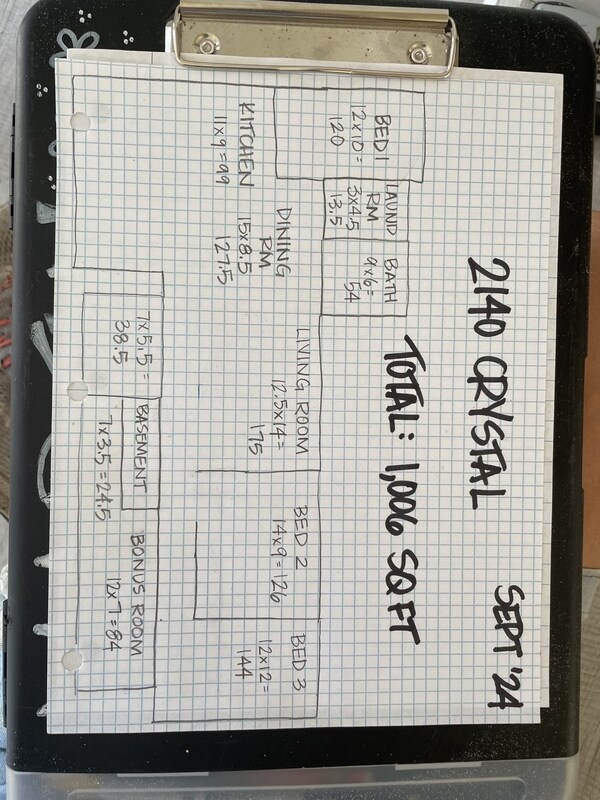 2140 CRYSTAL
SEPT '24
TOTAL: 1,006 SQ FT
BED 1
12x10=
120
LAUND
RM
3x4.5
13.5
BATH
9x6=
54
KITCHEN
11x9=99
DINING
RM
15x8.5
127.5
LIVING ROOM
12.5x14=
175
BED 2
14x9=126
BED 3
12x12=
144
7x5.5=
38.5
BASEMENT
7x3.5=24.5
BONUS ROOM
12x7=84